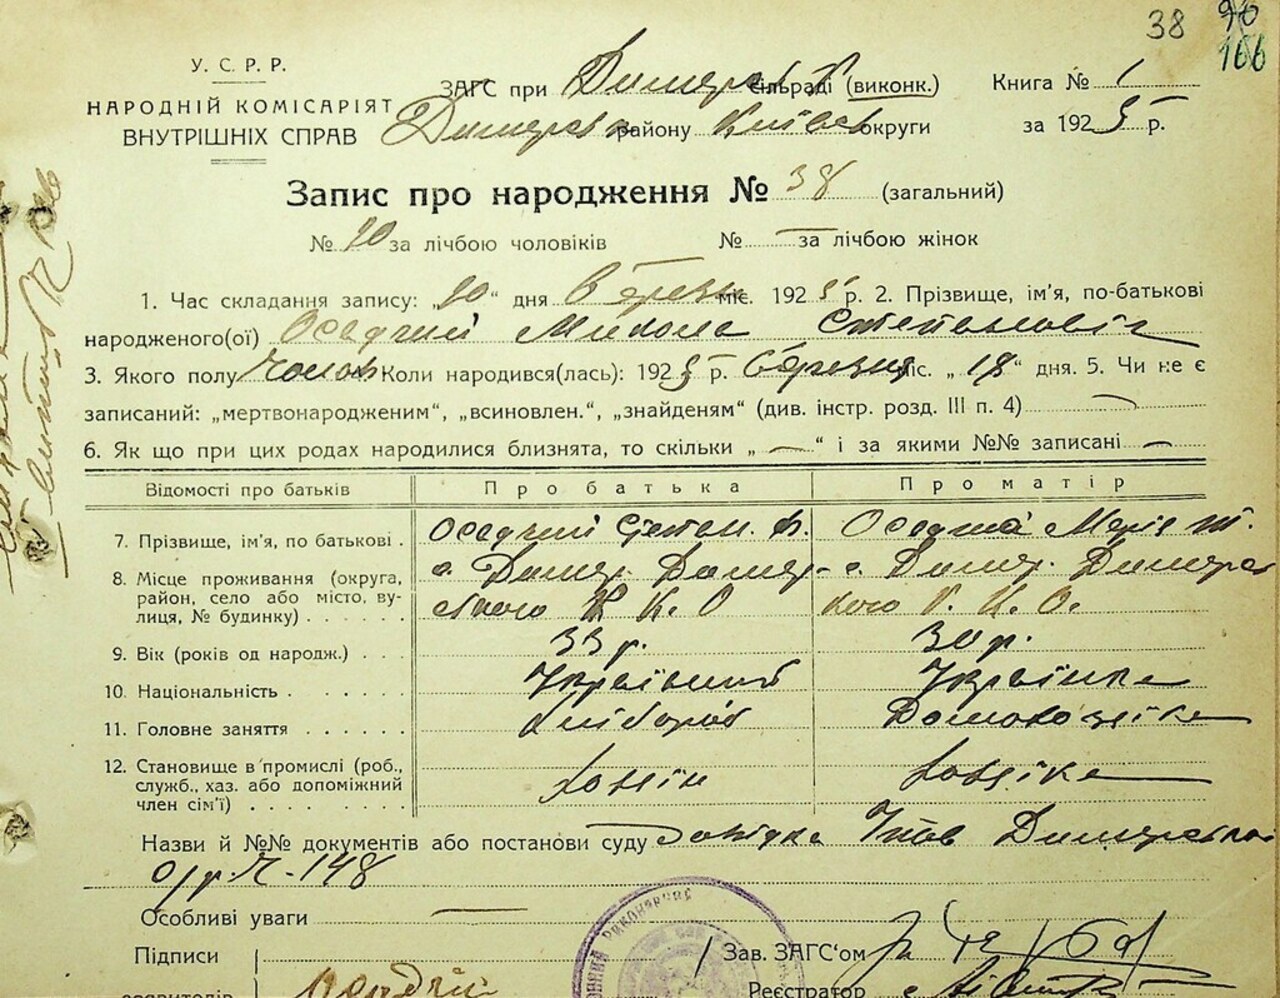 38
96
166
У. С. Р. Р.
НАРОДНІЙ КОМІСАРІЯТ
ВНУТРІШНІХ СПРАВ
ЗАГС при Димерськ Сільраді (виконк.)
Димерськ району Київськ округи
Книга № 1
за 1925 р.
Запис про народження № 38 (загальний)
№ 20 за лічбою чоловіків № — за лічбою жінок
1. Час складання запису: „20“ дня березня міс. 1925 р. 2. Прізвище, ім'я, по-батькові
народженого(ої) Осадчий Микола Степанович
3. Якого полу Чолов Коли народився(лась): 1925 р. березня міс. „18“ дня. 5. Чи не є
записаний: „мертвонародженим“, „всиновлен.“, „знайденям“ (див. інстр. розд. III п. 4) —
6. Як що при цих родах народилися близнята, то скільки „ — “ і за якими №№ записані —
Відомості про батьків
Про батька
Про матір
7. Прізвище, ім'я, по батькові .
Осадчий Степан.
Осадча Марія
8. Місце проживання (округа,
район, село або місто, ву-
лиця, № будинку) . . . . . .
с. Димер. Димер-
ського К. О
с. Димер. Димерсь
кого К. О.
9. Вік (років од народж.) . . .
33 р.
30 р.
10. Національність . . . . . .
Українець
Українка
11. Головне заняття . . . . . .
Хлібороб
Домохазяйка
12. Становище в промислі (роб.,
служб., хаз. або допоміжний
член сім'ї) . . . . . . . .
Хазяїн
Хазяйка
Назви й №№ документів або постанови суду довідка Димерської
ч. 148
Особливі уваги —
Підписи
заявителів
Осадчій
Зав. ЗАГС'ом
Реєстратор